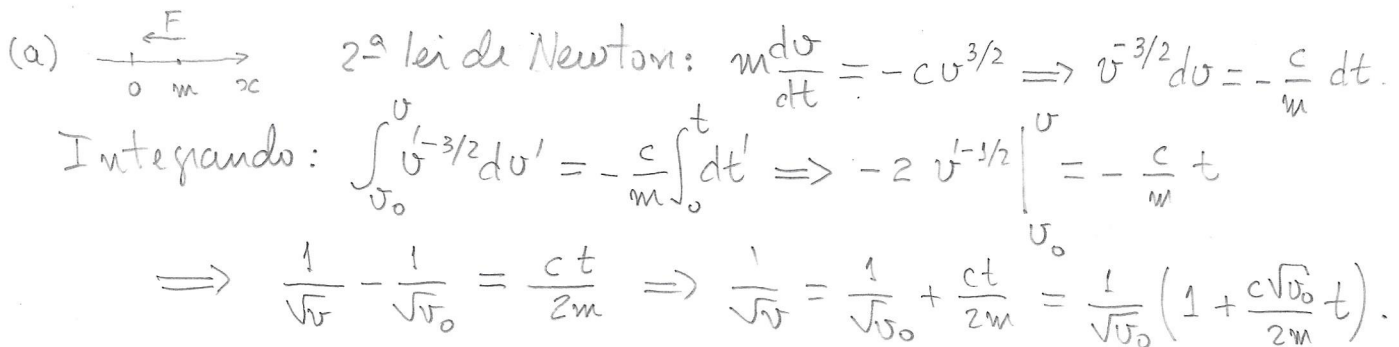 (a) F 0 m x 2ª lei de Newton: m dv/dt = -cv^{3/2} ⟹ v^{-3/2} dv = -c/m dt.
Integrando: ∫_{v₀}^{v} v'^{-3/2} dv' = -c/m ∫_0^t dt' ⟹ -2 v'^{-1/2} |_{v₀}^{v} = -c/m t
⟹ 1/√v - 1/√v₀ = ct/2m ⟹ 1/√v = 1/√v₀ + ct/2m = 1/√v₀ (1 + c√v₀/2m t).